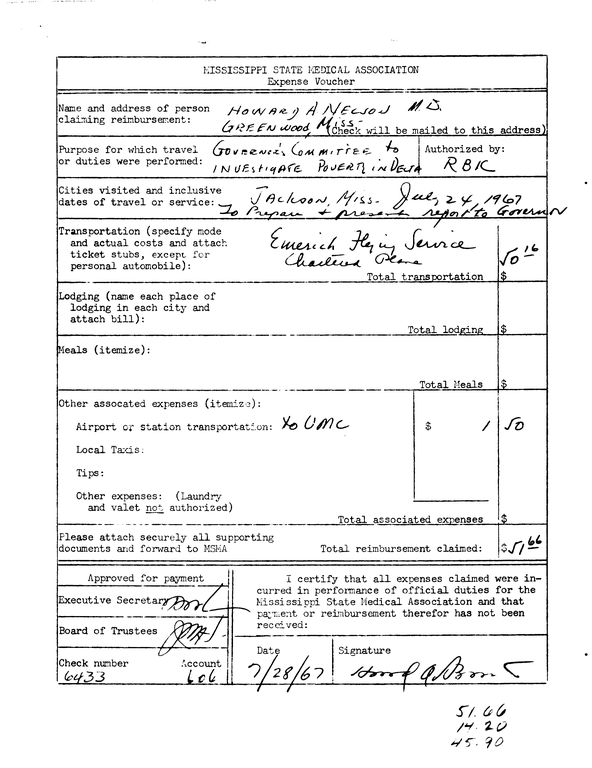 MISSISSIPPI STATE MEDICAL ASSOCIATION
Expense Voucher
Name and address of person claiming reimbursement: HOWARD A NELSON M D.
GREENWOOD, MISS-
(Check will be mailed to this address)
Purpose for which travel or duties were performed: GOVERNOR'S COMMITTEE to
INVESTIGATE POVERTY IN DELTA
Authorized by:
RBK
Cities visited and inclusive dates of travel or service: JACKSON, MISS- July 24, 1967
To Prepare + present report to Governor
Transportation (specify mode
and actual costs and attach
ticket stubs, except for
personal automobile):
Emerich Flying Service
Chartered Plane
50 16
Total transportation $
Lodging (name each place of
lodging in each city and
attach bill):
Total lodging $
Meals (itemize):
Total Meals $
Other assocated expenses (itemize):
Airport or station transportation: to UMC $ 1 50
Local Taxis:
Tips:
Other expenses: (Laundry
and valet not authorized)
Total associated expenses $
Please attach securely all supporting
documents and forward to MSMA
Total reimbursement claimed: $ 51 66
Approved for payment
Executive Secretary
Board of Trustees
Check number Account
6433 606
I certify that all expenses claimed were in-
curred in performance of official duties for the
Mississippi State Medical Association and that
payment or reimbursement therefor has not been
received:
Date Signature
7/28/67
51.66
14.20
45.90